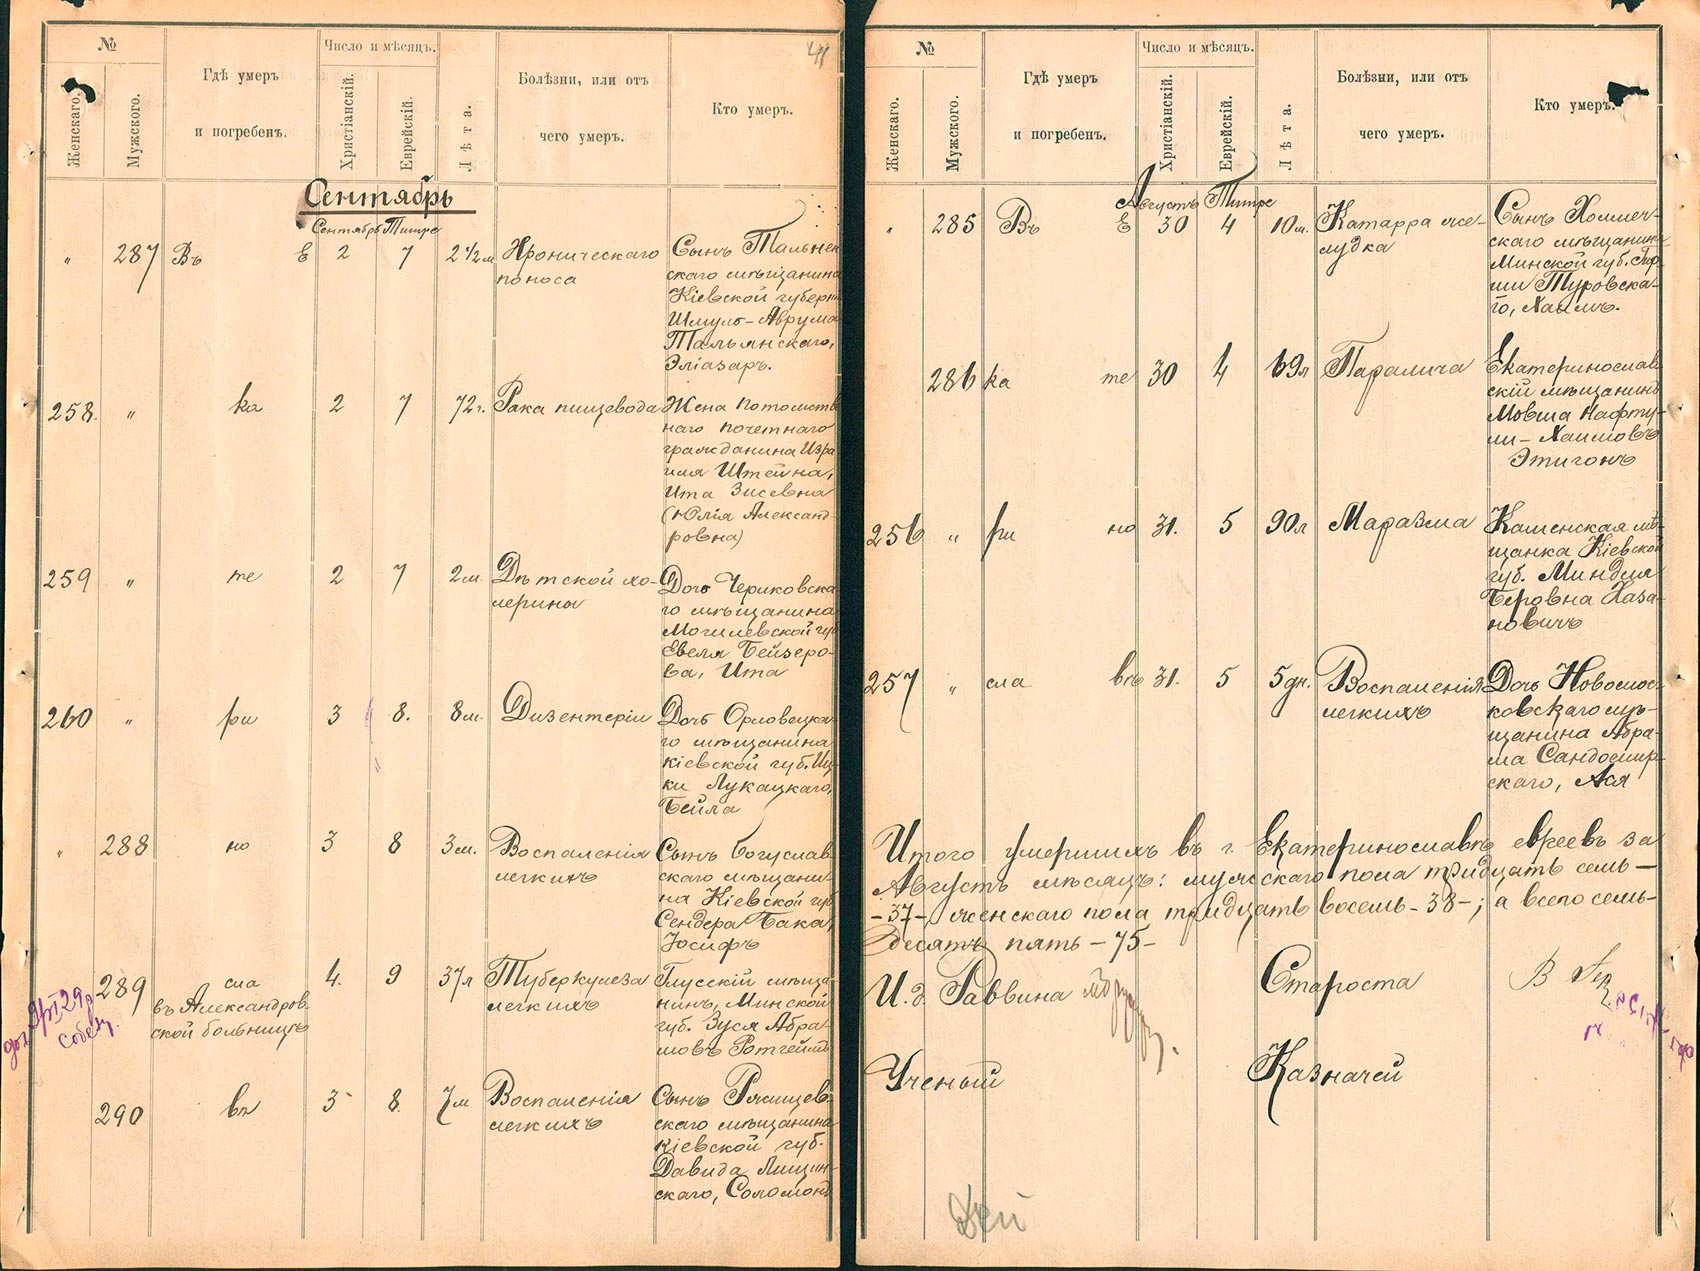 №
Женскаго.
Мужского.
Гдѣ умеръ
и погребенъ.
Число и мѣсяцъ.
Христіанскій.
Еврейскій.
Лѣта.
Болѣзни, или отъ
чего умеръ.
Кто умеръ.
41
Сентябрь
Сентябрь Тишре
„ 287 Въ Е 2 7 2 1/2 м Хроническаго
поноса
Сынъ Тальнен
скаго мѣщанина
Кіевской губерн
Шмуль-Аврума
Тальянскаго,
Эліазаръ.
258. „ ка 2 7 72 г. Рака пищевода
Жена потомств
наго почетнаго
гражданина Изра
иля Штейна,
Ита Зисевна
(Юлія Александ
ровна)
259 „ те 2 7 2 м Дѣтской хо-
лерины
Дочь Чериковска
го мѣщанина
Могилевской губ
Евеля Бейзеро-
ва, Ита
260 „ ри 3 8. 8 м. Дизентеріи
Дочь Орловецка
го мѣщанина
кіевской губ. Иц-
ки Лукацкаго,
Бейла
„ 288 но 3 8 3 м. Воспаленія
легкихъ
Сынъ Богуслав
скаго мѣщани-
на Кіевской губ
Сендера Бака,
Іосифъ
289 сла 4. 9 37 л Туберкулеза
въ Александров-
ской больницѣ
легкихъ
Глусскій мѣща
нинъ, Минской
губ. Зуся Абра-
мовъ Ротгейтъ
290 вѣ 3 8. 7 м Воспаленія
легкихъ
Сынъ Рясищев-
скаго мѣщанина
кіевской губ.
Давида Лищин-
скаго, Соломонъ
№
Женскаго.
Мужского.
Гдѣ умеръ
и погребенъ.
Число и мѣсяцъ.
Христіанскій.
Еврейскій.
Лѣта.
Болѣзни, или отъ
чего умеръ.
Кто умеръ.
Августъ Тишре
„ 285 Въ Е 30 4 10 м. Катарра же-
лудка
Сынъ Холмеч-
скаго мѣщанина
Минской губ.
Туровска-
го, Хаимъ.
286 ка те 30 4 69 л Паралича
Екатеринослав
скій мѣщанинъ
Мовша Нафту-
ли-Хаимовъ
Этигонъ
256 „ ри но 31. 5 90 л Маразма
Каменская мѣ-
щанка Кіевской
губ. Миндля
Беровна Хаза-
новичъ
257 „ сла вѣ 31. 5 5 дн. Воспаленія
легкихъ
Дочь Новомос-
ковскаго мѣ-
щанина Абра-
ма Сандомир-
скаго, Ася
Итого умершихъ въ г. Екатеринославѣ евреевъ за
Августъ мѣсяцъ: мужскаго пола тридцать семь —
-37-, женскаго пола тридцать восемь -38-; а всего семь-
десятъ пять -75-
И. д. Раввина
Староста
Ученый
Казначей